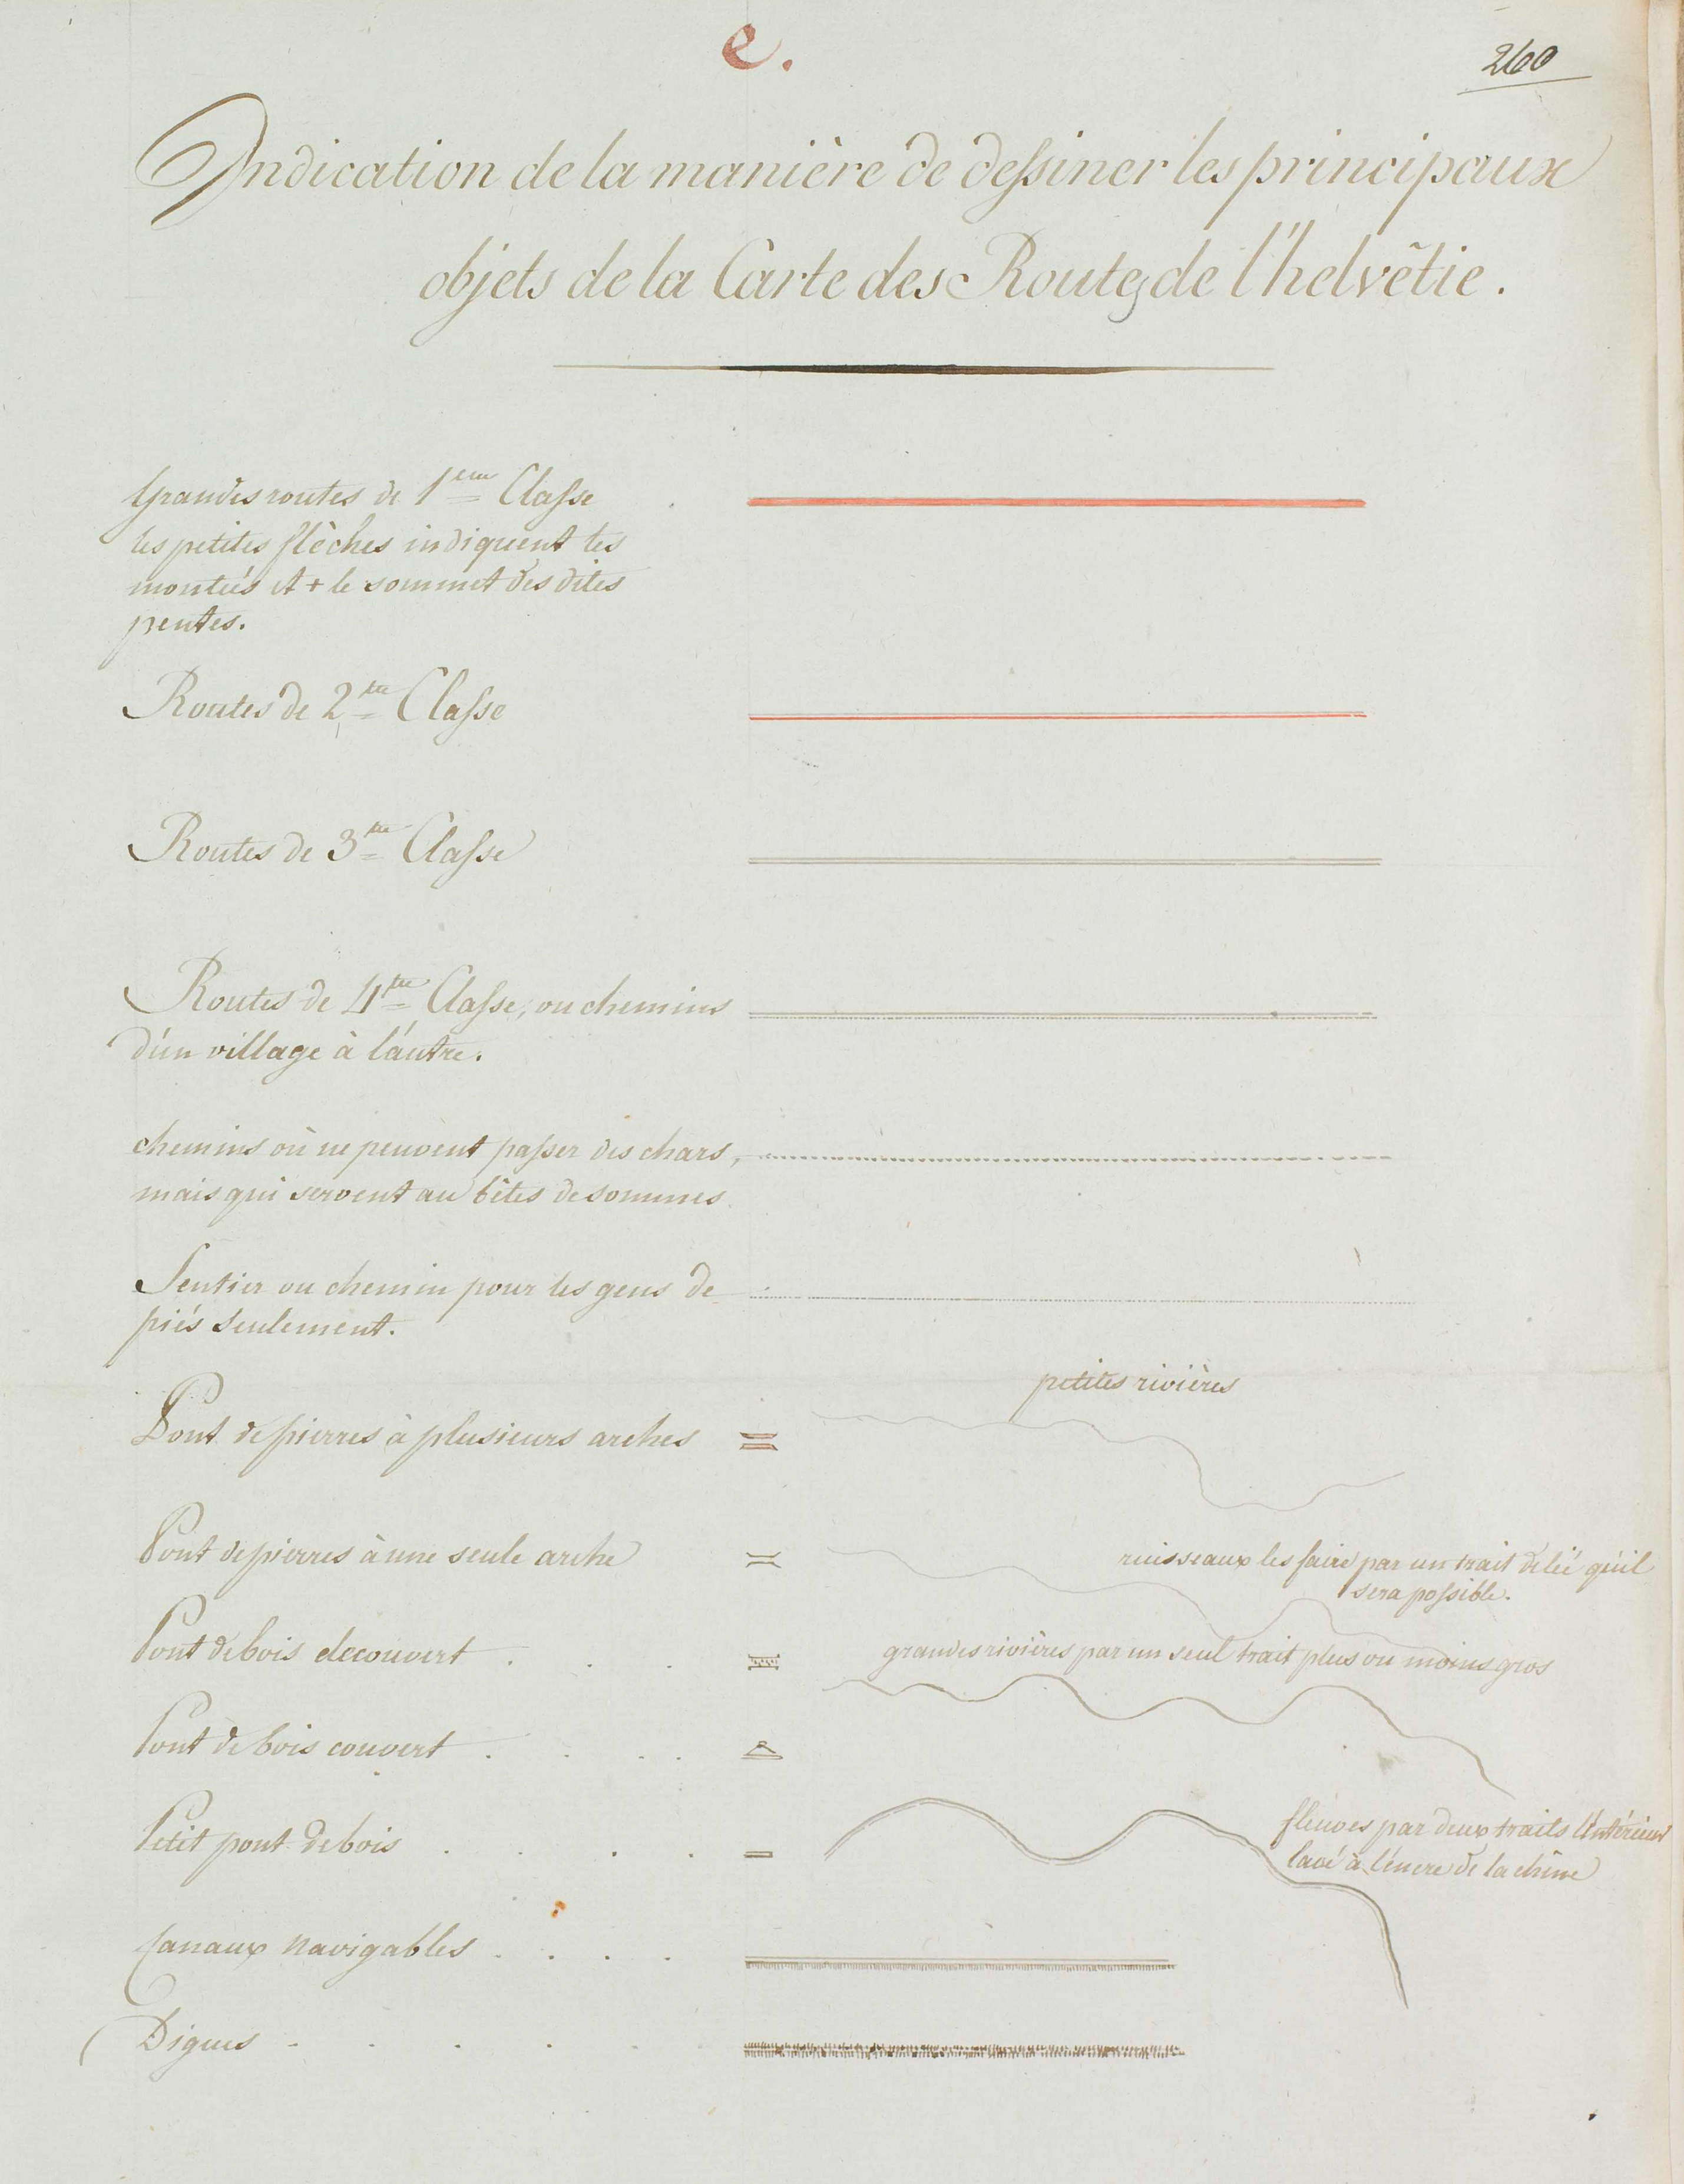 e.
260
Indication de la manière de dessiner les principaux
objets de la Carte des Routes de l'helvêtie.
Grandes routes de 1ere Classe
les petites flèches indiquent les
montées et + le sommet des dites
pentes.
Routes de 2de Classe
Routes de 3me Classe
Routes de 4me Classe, ou chemins
d'un village à l'autre.
chemins où ne peuvent passer des chars,
mais qui servent au bêtes de sommes
Sentier ou chemin pour les gens de
piés seulement.
petites rivières
Pont de pierres à plusieurs arches
Pont de pierres à une seule arche
ruisseaux les faire par un trait delié qu'il
sera possible.
Pont de bois decouvert
grandes rivières par un seul trait plus ou moins gros
Pont de bois couvert
Petit pont de bois
fleuves par deux traits l'intérieur
lavé à l'encre de la chine
Canaux navigables
Digues